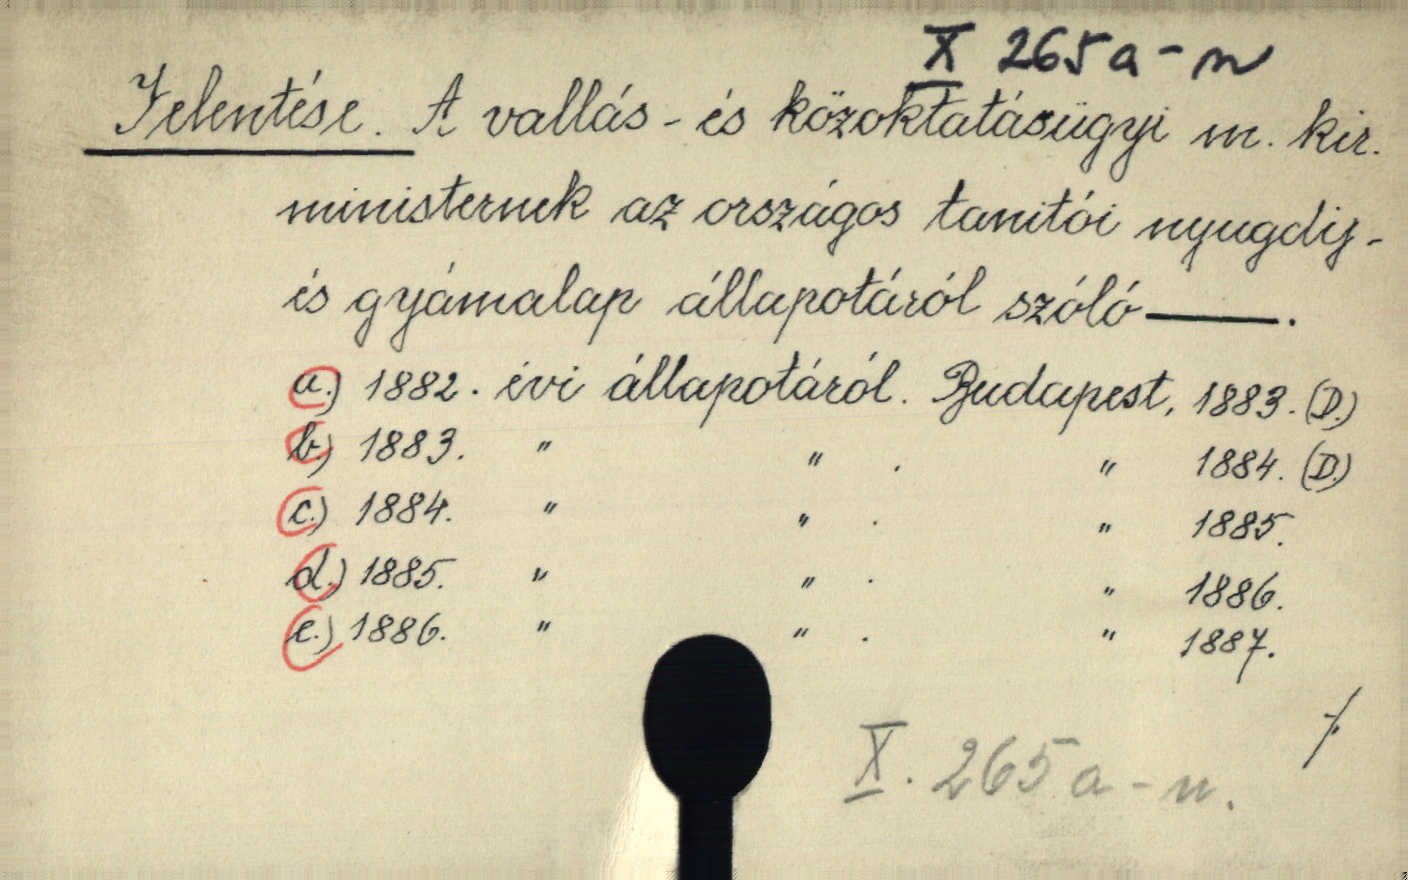 X 265 a - n
Jelentése. A vallás- és közoktatásügyi m. kir.
ministernek az országos tanitói nyugdij-
és gyámalap állapotáról szóló ———.
a.) 1882. évi állapotáról. Budapest, 1883. (D.)
b.) 1883. " " . " 1884. (D.)
c.) 1884. " " . " 1885.
d.) 1885. " " . " 1886.
e.) 1886. " " . " 1887.
X. 265 a - n.